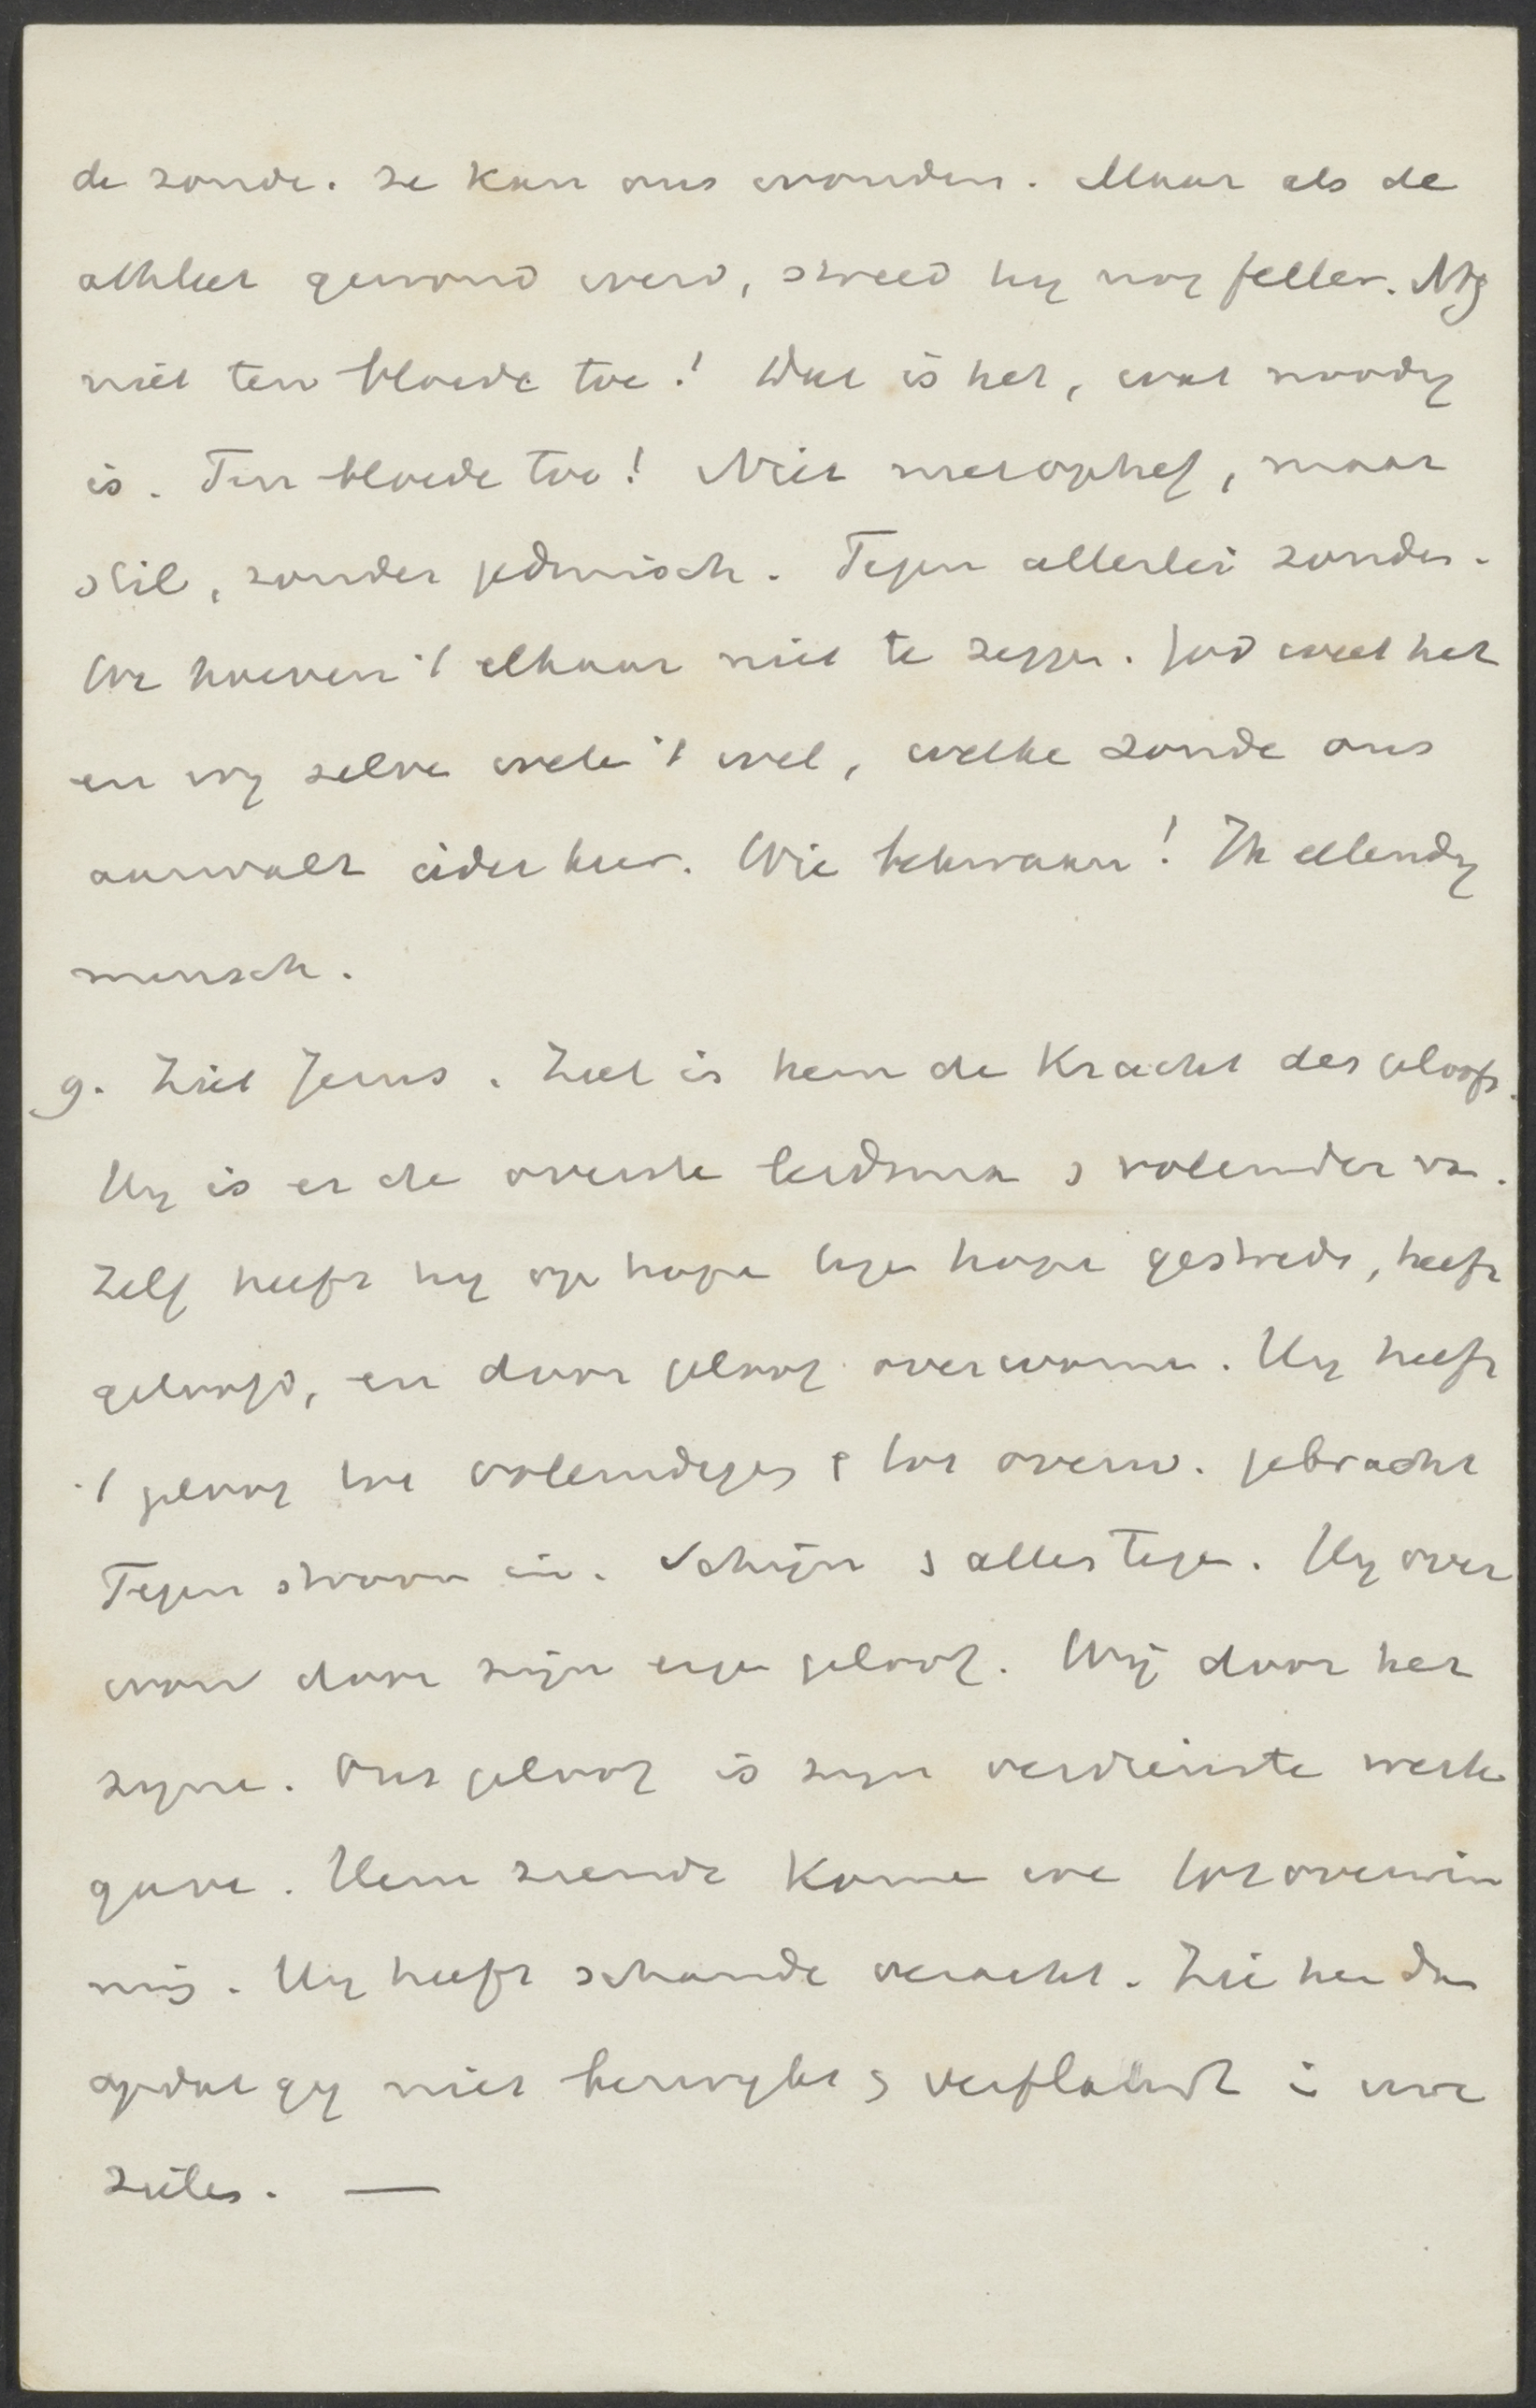 de zonde. Ze kan ons wonden. Maar als de
athleet gewond werd, streed hy nog feller. Nog
niet ten bloede toe! Dat is het, wat noodig
is. Ten bloede toe! Niet met ophef, maar
stil, zonder gedruisch. Tegen allerlei zonden.
We hoeven 't elkaar niet te zeggen. God weet het
en wy zelve weten 't wel, welke zonde ons
aanvalt ieder keer. Wie bekwaam! Ik ellendig
mensch.
g. Ziet Jezus. Ziet in hem de Kracht des geloofs.
Hy is er de overste leidsman & voleinder van.
Zelf heeft hy op hope tegen hope gestreden, heeft
geloofd, en door geloof overwonnen. Hy heeft
't geloof tot voleindiges & tot overw. gebracht
Tegen stroom in. Schijn & alles tegen. Hy over
won door zijn eigen geloof. Wij door het
zyne. Ons geloof is zyn verdienste werk
gave. Hem ziende komen we tot overwin
ning. Hy heeft schande veracht. Ziet hem dan
opdat gy niet bezwykt & verflauwt in uwe
zielen. —